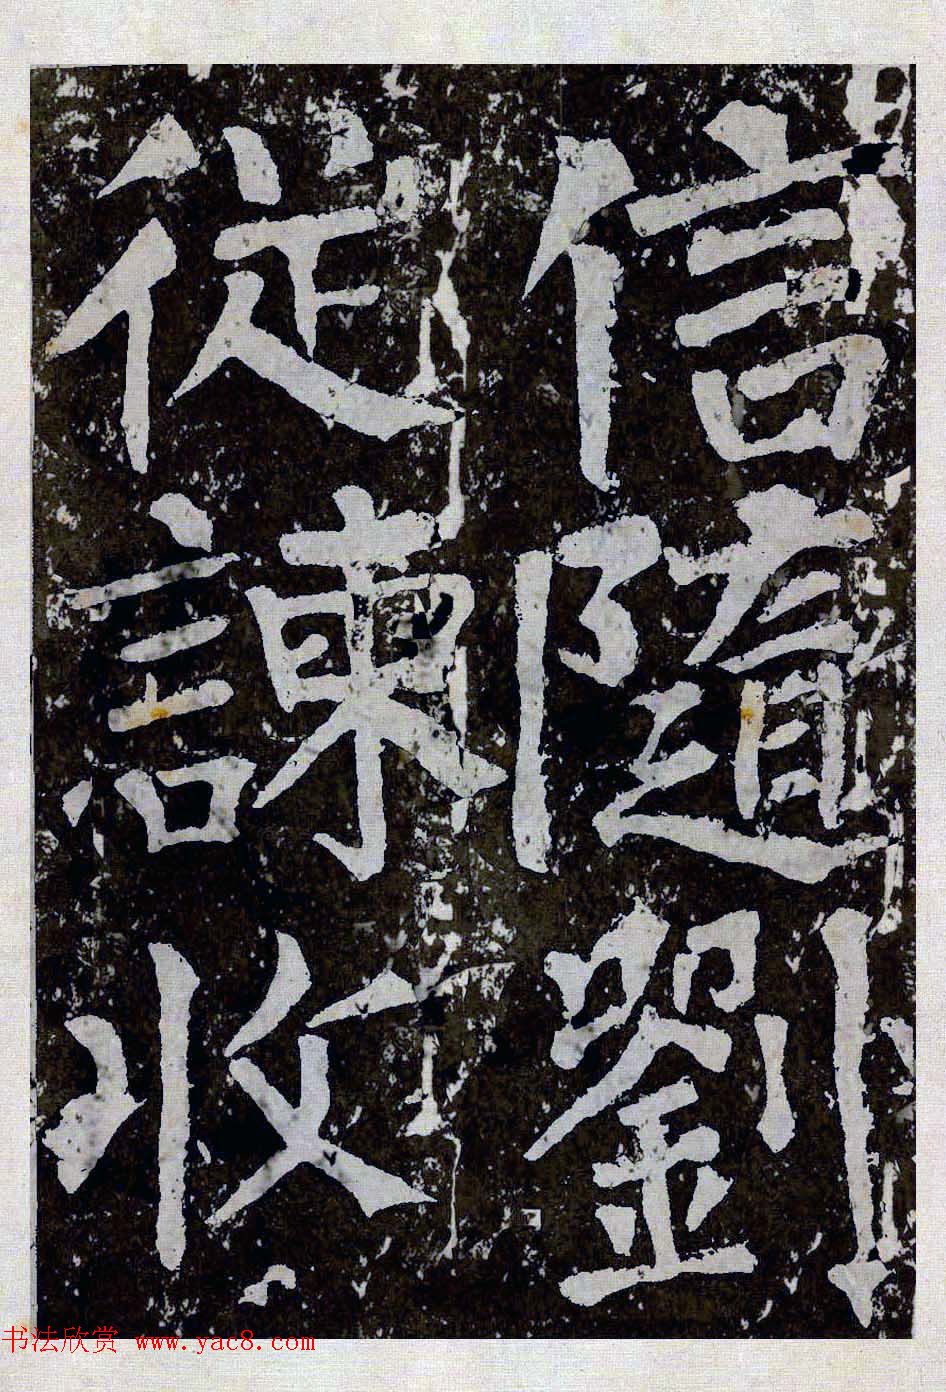 信隨劉
従諫收
书法欣赏 www.yac8.com